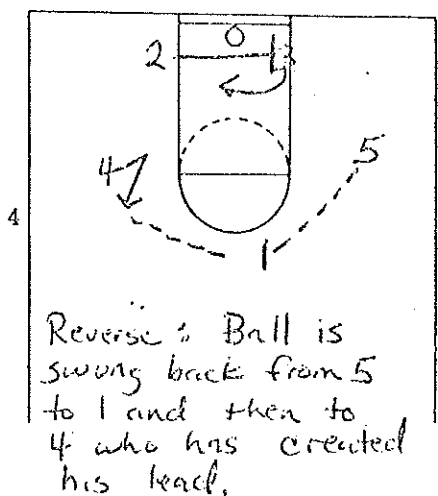 2
4
5
4
1
Reverse: Ball is
swung back from 5
to 1 and then to
4 who has created
his lead.